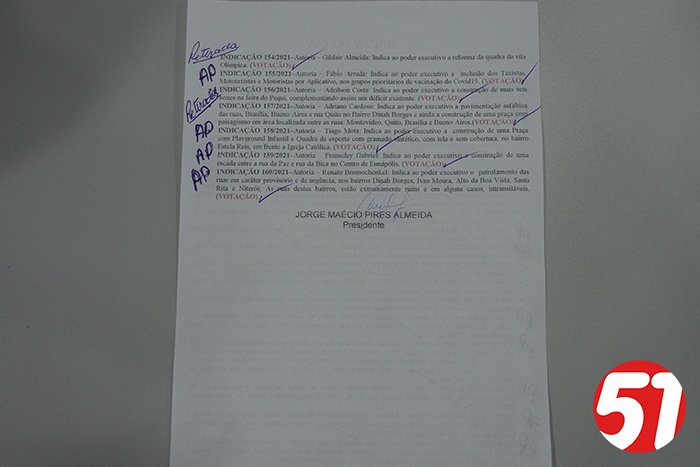 Retirada
INDICAÇÃO 154/2021–Autoria – Gildair Almeida: Indica ao poder executivo a reforma da quadra da vila
Olímpica. (VOTAÇÃO)
AP
INDICAÇÃO 155/2021–Autoria – Fábio Arruda: Indica ao poder executivo a inclusão dos Taxistas,
Mototaxistas e Motoristas por Aplicativo, nos grupos prioritários de vacinação do Covid19. (VOTAÇÃO)
Retirada
INDICAÇÃO 156/2021–Autoria – Adeilson Costa: Indica ao poder executivo a construção de mais seis
boxes na feira do Pequi, complementando assim um déficit existente. (VOTAÇÃO)
AP
INDICAÇÃO 157/2021–Autoria – Adriano Cardoso: Indica ao poder executivo a pavimentação asfáltica
das ruas, Brasília, Bueno Aires e rua Quito no Bairro Dinah Borges e ainda a construção de uma praça com
paisagismo em área localizada entre as ruas: Montevideo, Quito, Brasília e Bueno Aires.(VOTAÇÃO)
AP
INDICAÇÃO 158/2021–Autoria – Tiago Mota: Indica ao poder executivo a construção de uma Praça
com Playground Infantil e Quadra de esporte com gramado sintético, com tela e sem cobertura, no bairro
Estela Reis, em frente a Igreja Católica. (VOTAÇÃO)
AP
INDICAÇÃO 159/2021–Autoria – Franschy Gabriel: Indica ao poder executivo a construção de uma
escada entre a rua da Paz e rua da Bica no Centro de Eunápolis. (VOTAÇÃO)
AP
INDICAÇÃO 160/2021–Autoria – Renato Bromochenkel: Indica ao poder executivo o patrolamento das
ruas em caráter provisório e da urgência, nos bairros Dinah Borges, Ivan Moura, Alto da Boa Vista, Santa
Rita e Niterói; As ruas destes bairros, estão extremamente ruins e em alguns casos, intransitáveis.
(VOTAÇÃO)
JORGE MAÉCIO PIRES ALMEIDA
Presidente
51